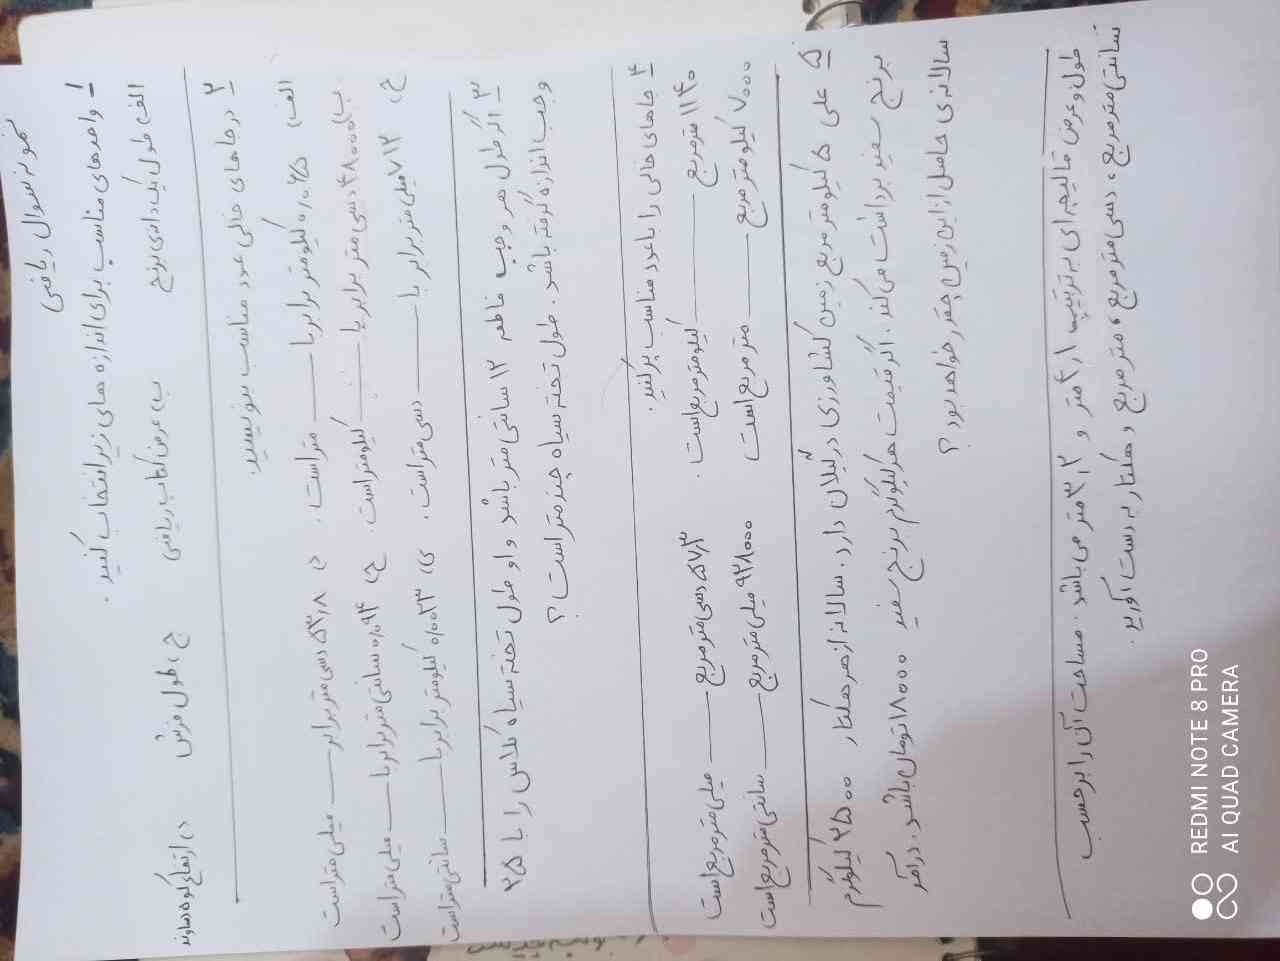 نمونه سوال ریاضی
1 واحدهای مناسب برای اندازه های زیر انتخاب کنید .
الف) طول یک دانه ی برنج ب) عرض کتاب ریاضی ج) طول فرش د) ارتفاع کوه دماوند
۲ درجاهای خالی عدد مناسب بنویسید.
الف) ۰٫۰۶۵ کیلومتر برابر با ــــ متر است . د) ۵۳٫۸ دسی متر برابر ــــ میلی متر است
ب) ۴۸۰۰۰ دسی متر برابر با ــــ کیلومتر است . ج) ۰٫۰۹۴ سانتی متر برابر با ــــ میلی متر است
ج) ۷۱۲ میلی متر برابر با ــــ دسی متر است . ی) ۰٫۰۰۲۳ کیلومتر برابر با ــــ سانتی متر است
۳ اگر طول هر وجب فاطمه ۱۲ سانتی متر باشد و او طول تخته سیاه کلاس را با ۲۵
وجب اندازه گرفته باشد . طول تخته سیاه چند متر است ؟
۴ جاهای خالی را با عدد مناسب پر کنید .
۱۱۴۰ متر مربع ــــ کیلومتر مربع است . ۵۷٫۳ دسی متر مربع ــــ میلی متر مربع است
۷۰۰۰ کیلومتر مربع ــــ متر مربع است ۹۲۸۰۰۰ میلی متر مربع ــــ سانتی متر مربع است
۵ علی ۵ کیلومتر مربع زمین کشاورزی در گیلان دارد . سالانه از هر هکتار ۲۵۰۰ کیلوگرم
برنج سفید برداشت می کند . اگر قیمت هر کیلوگرم برنج سفید ۱۸۰۰۰ تومان باشد . درآمد
سالانه ی حاصل از این زمین چقدر خواهد بود ؟
طول و عرض قالیچه ای به ترتیب ۴٫۱ متر و ۳٫۲ متر می باشد . مساحت آن را بر حسب
سانتی متر مربع ، دسی متر مربع ، متر مربع و هکتار به دست آورید .
REDMI NOTE 8 PRO
AI QUAD CAMERA